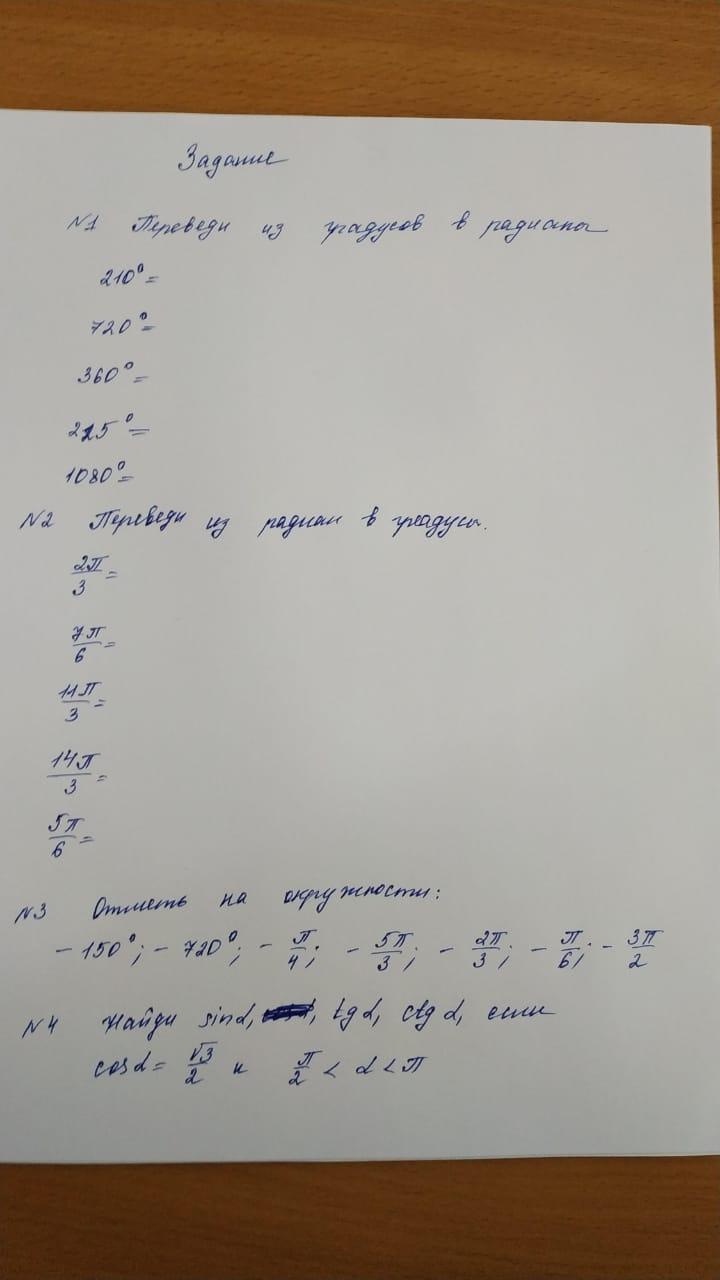 Задание
№1 Переведи из градусов в радианы
210°=
720°=
360°=
225°=
1080°=
№2 Переведи из радиан в градусы.
2π/3=
7π/6=
11π/3=
14π/3=
5π/6=
№3 Отметь на окружности:
-150°; -720°; -π/4; -5π/3; -2π/3; -π/6; -3π/2
№4 Найди sinα, , tgα, ctgα, если
cosα=√3/2 и π/2<α<π